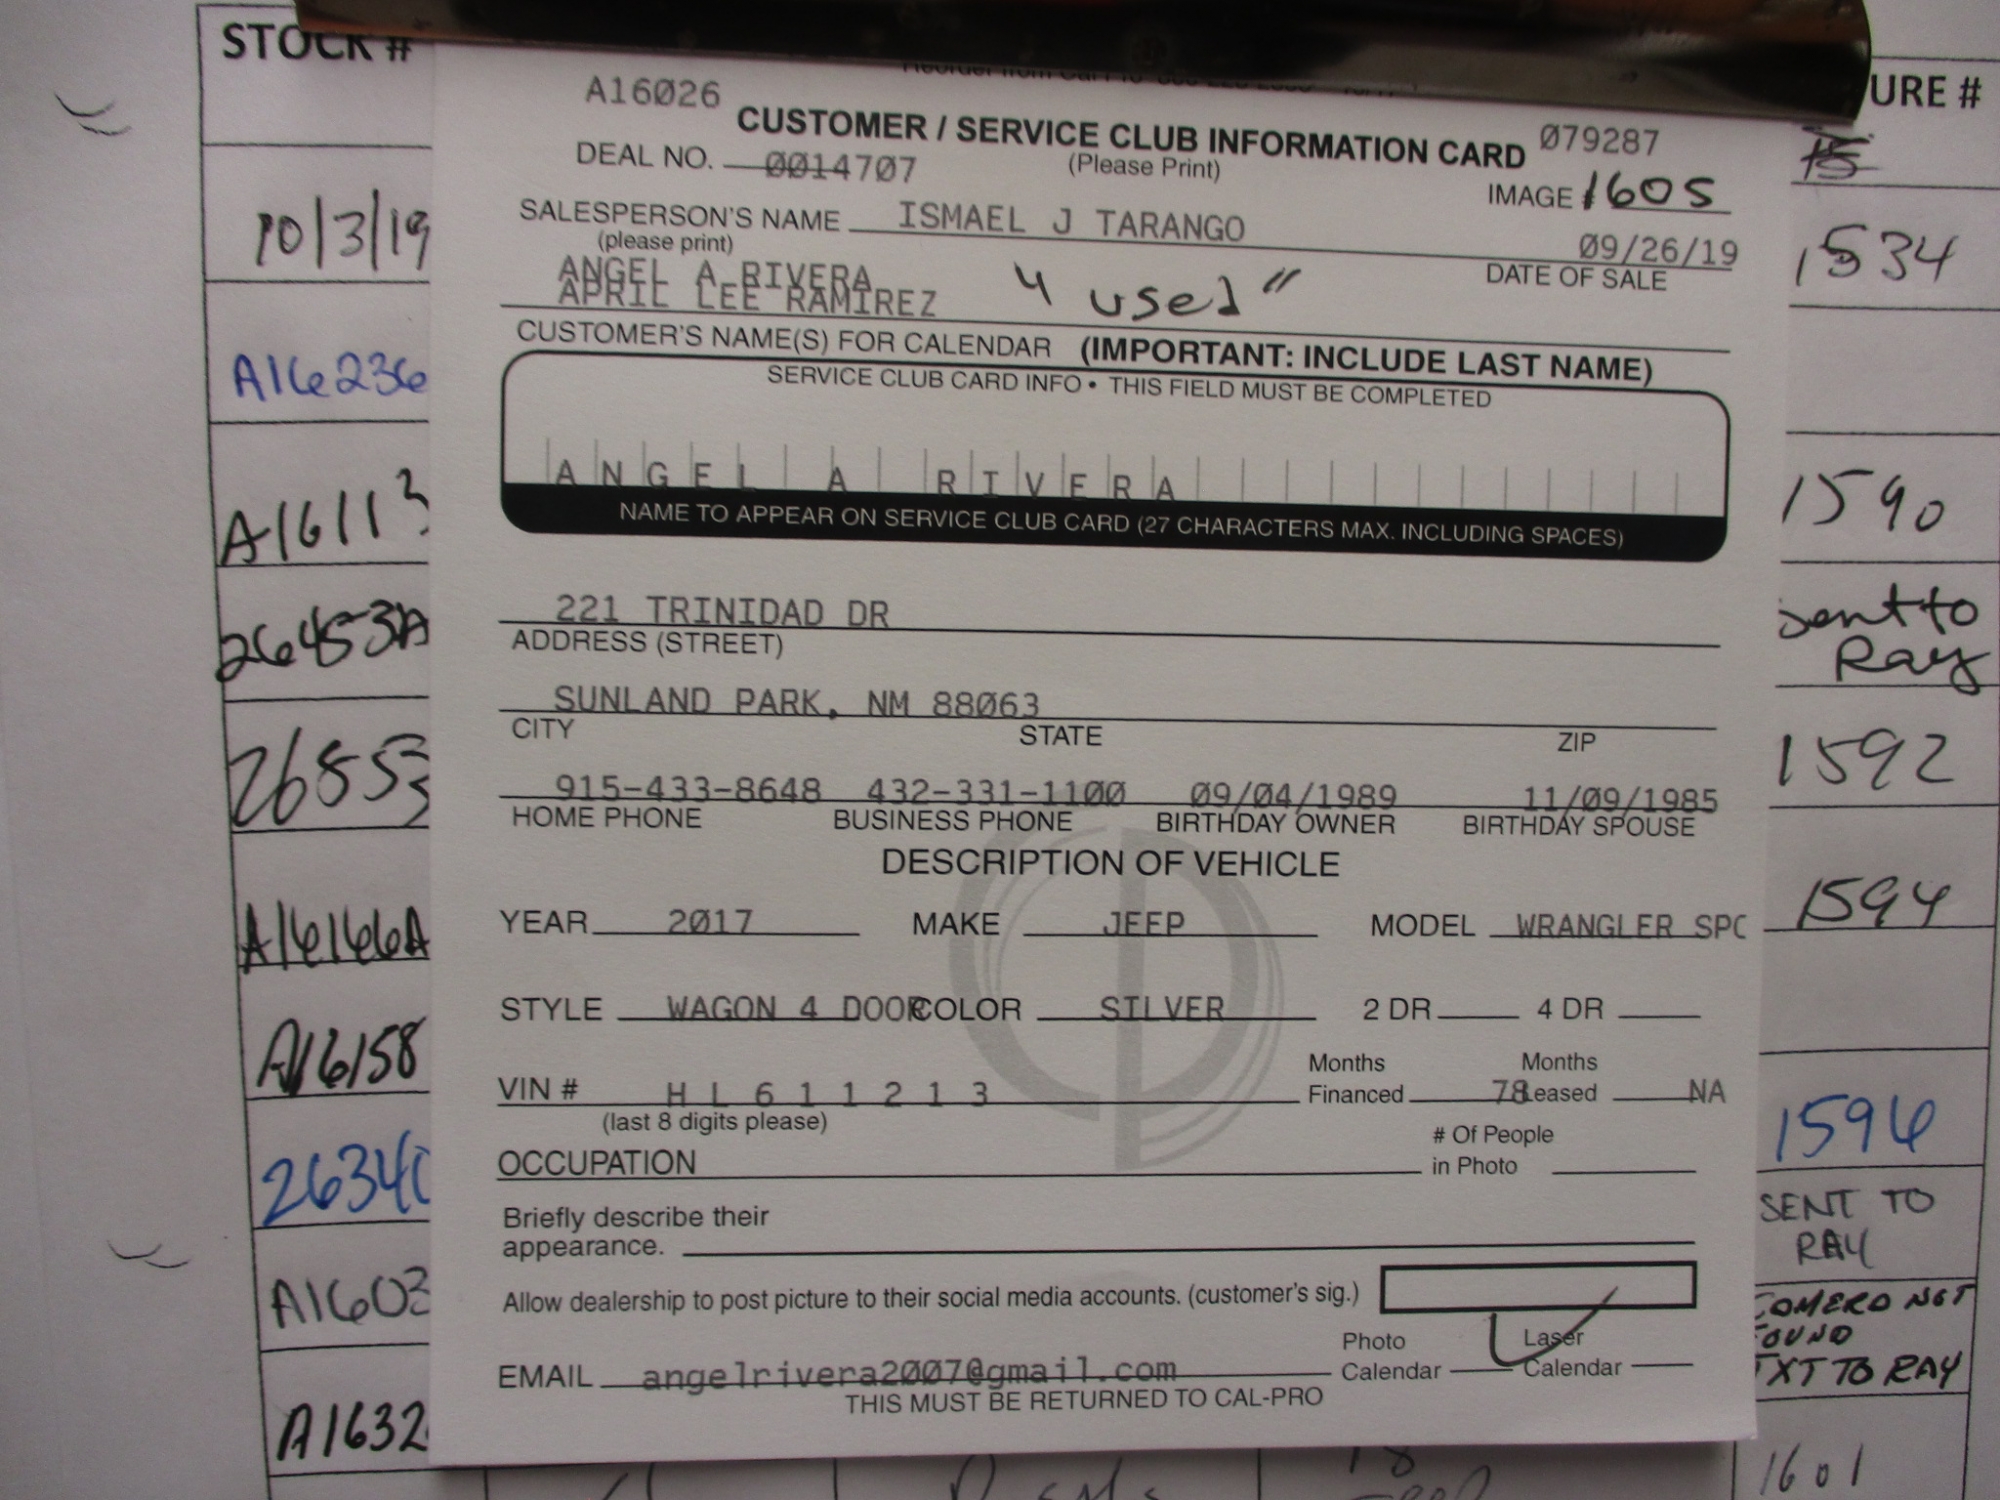 STOCK #
10/3/19
A16236
A16113
26453A
26853
A16166A
A16158
26340
A1603
A1632
A16026
CUSTOMER / SERVICE CLUB INFORMATION CARD 079287
DEAL NO. 0014707 (Please Print)
IMAGE 1605
SALESPERSON'S NAME ISMAEL J TARANGO
(please print)
09/26/19
DATE OF SALE
ANGEL A RIVERA
APRIL LEE RAMIREZ
"used"
CUSTOMER'S NAME(S) FOR CALENDAR (IMPORTANT: INCLUDE LAST NAME)
SERVICE CLUB CARD INFO • THIS FIELD MUST BE COMPLETED
ANGEL A RIVERA
NAME TO APPEAR ON SERVICE CLUB CARD (27 CHARACTERS MAX. INCLUDING SPACES)
221 TRINIDAD DR
ADDRESS (STREET)
SUNLAND PARK, NM 88063
CITY STATE ZIP
915-433-8648 432-331-1100 09/04/1989 11/09/1985
HOME PHONE BUSINESS PHONE BIRTHDAY OWNER BIRTHDAY SPOUSE
DESCRIPTION OF VEHICLE
YEAR 2017 MAKE JEEP MODEL WRANGLER SPO
STYLE WAGON 4 DOOR COLOR SILVER 2 DR 4 DR
VIN # H L 6 1 1 2 1 3 Months Financed 78 Months Leased NA
(last 8 digits please)
OCCUPATION # Of People in Photo
Briefly describe their
appearance.
Allow dealership to post picture to their social media accounts. (customer's sig.)
EMAIL angelrivera2007@gmail.com Photo Calendar Laser Calendar
THIS MUST BE RETURNED TO CAL-PRO
URE #
15
1534
1590
sent to
Ray
1592
1594
1596
SENT TO
RAY
COMERO NOT
FOUND
TXT TO RAY
1601